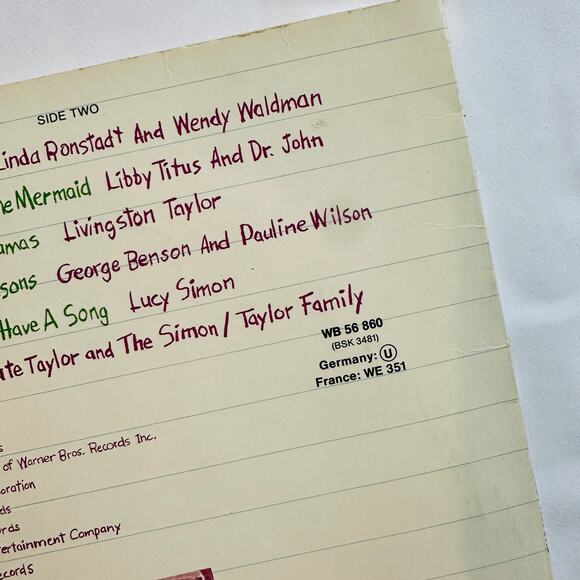 SIDE TWO
Linda Ronstadt And Wendy Waldman
Mermaid Libby Titus And Dr. John
Livingston Taylor
George Benson And Pauline Wilson
Have A Song Lucy Simon
Taylor and The Simon/Taylor Family
WB 56 860
(BSK 3481)
Germany: U
France: WE 351
of Warner Bros. Records Inc.
Company